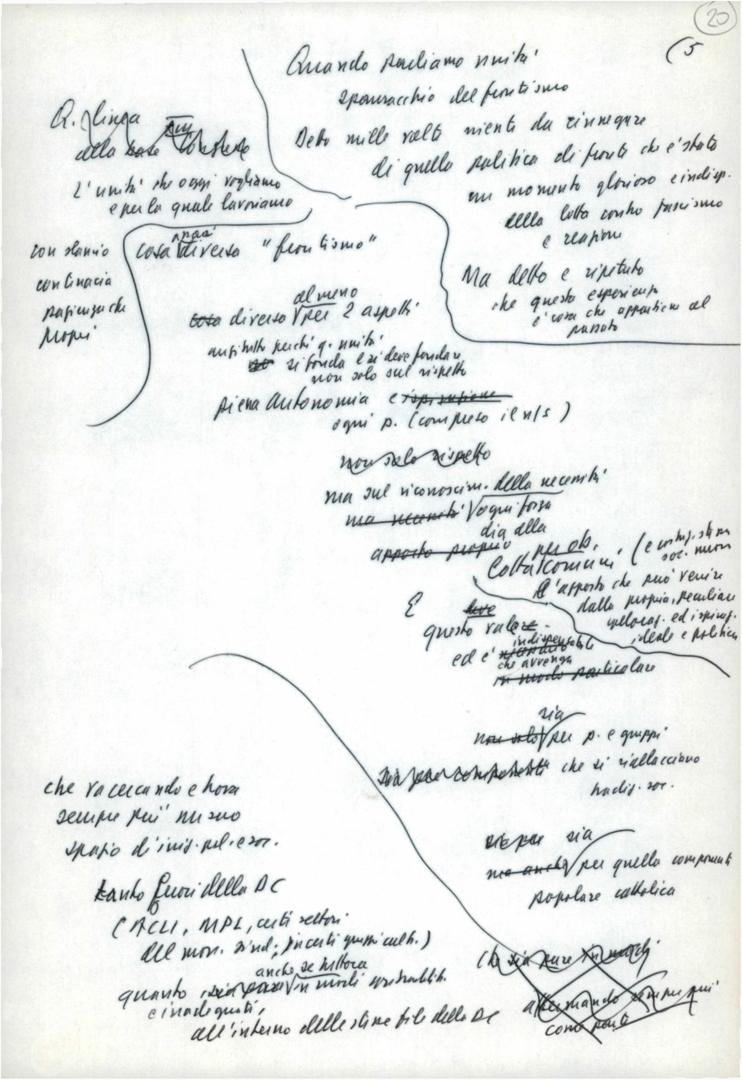 20
(5
Quando parliamo unità
spauracchio del frontismo
Detto mille volte niente da rinnegare
di quella politica di fronti che è stata
un momento glorioso e indisp.
della lotta contro fascismo
e reazione
Ma detto e ripetuto
che questa esperienza
è cosa che appartiene al
passato
Q. linea
alla base
L'unità che oggi vogliamo
e per la quale lavoriamo
cosa diversa "frontismo"
con slancio
continacia
pazienza che
proprii
almeno
cosa diverso per 2 aspetti
anzitutto perché q. unità
si fonda e si deve fondare
non solo sul rispetto
piena autonomia e
ogni p. (compreso il n/s)
non solo rispetto
ma sul riconoscim. della necessità
ma necessità ogni forza
dia alla
apporto proprio per ob.
lotta comuni (e
soc. nuova
l'apporto che può venire
dalla propria, peculiare
ed ispiraz.
ideale e politica
E
questo vale
indispensabile
ed è
che avvenga
in modo particolare
sia
non solo per p. e gruppi
sia per componenti che si riallacciano
tradiz. soc.
sia per sia
ma anche per quella componente
popolare cattolica
che va cercando e trova
sempre più nuovo
spazio d'iniz. pol. e soc.
tanto fuori della DC
(ACLI, MPL, certi settori
del mov. sind., in certi gruppi cult.)
anche se tuttora
quanto, sia pure in modi contradditt.
e inadeguati,
all'interno delle stesse file della DC
che sia pure in modi
affermando sempre più
come parte